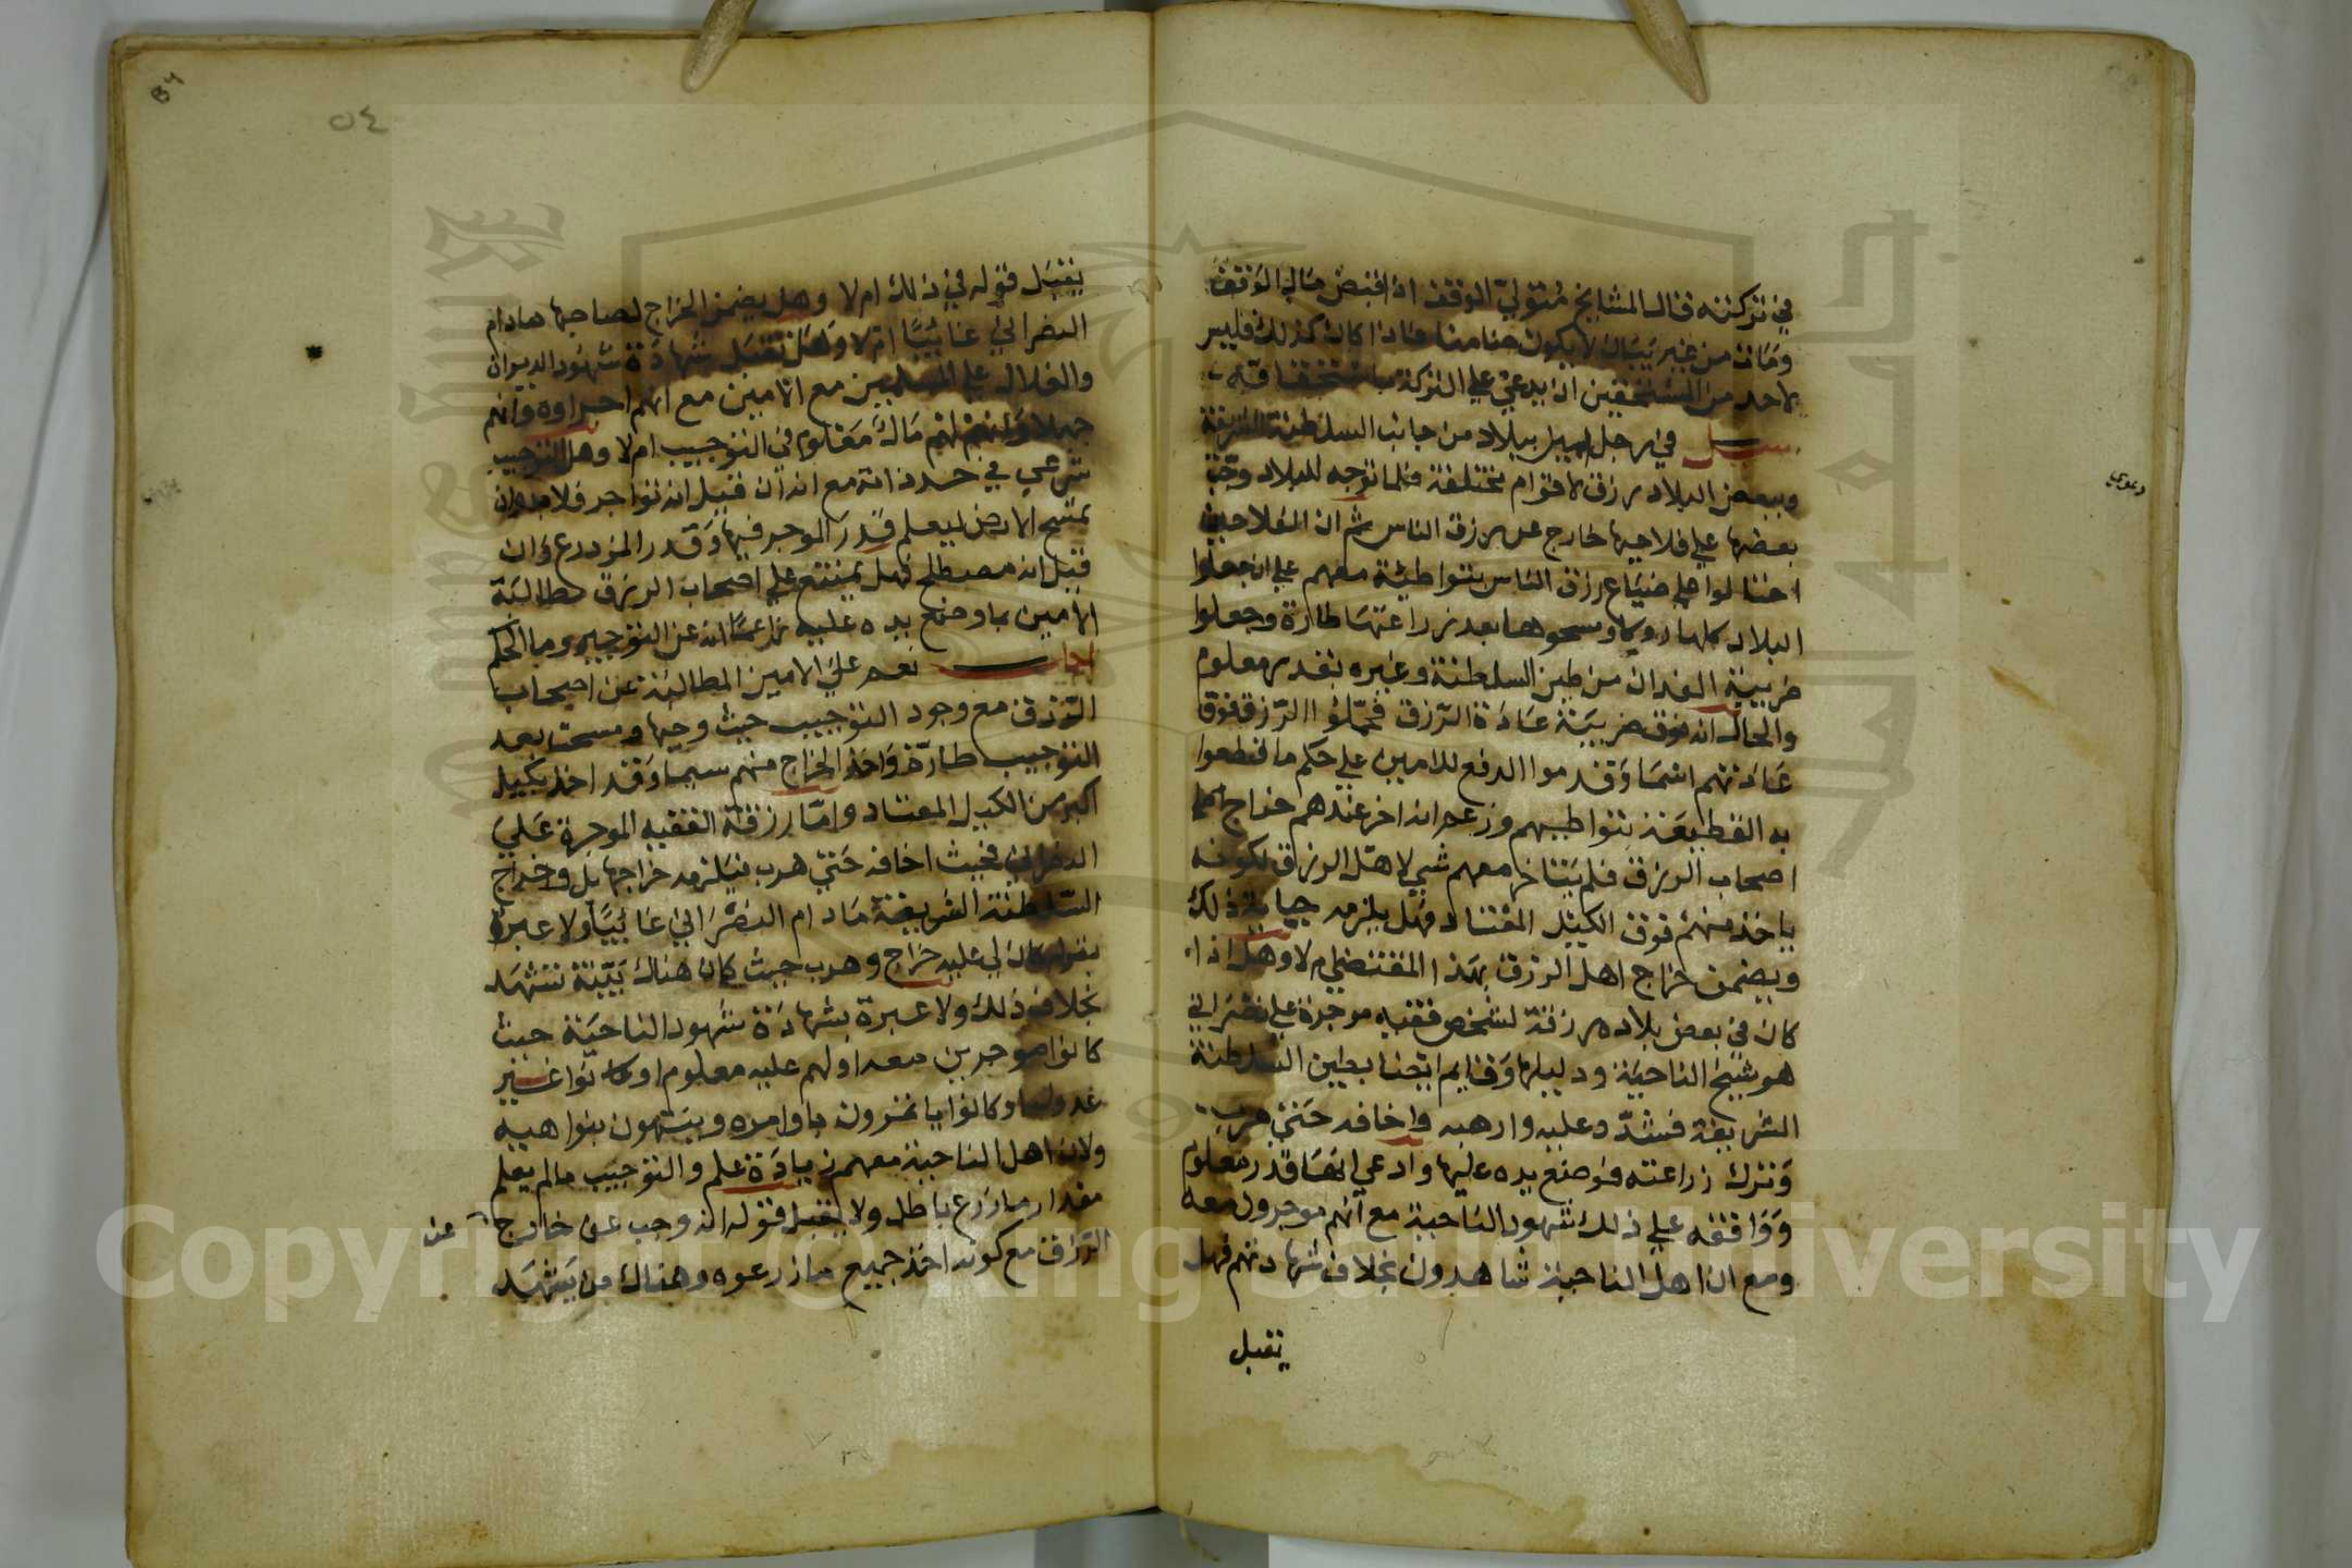 في تركته قال المشايخ متولي الوقف اذا قبض مال الوقف
ومات من غير بيان لا يكون ضامنا فاذا كان كذلك فليس
لاحد من المستحقين ان يدعي علي التركة باستحقاقه
سيل في رجل ببلاد من جانب السلطنة الشريفة
وببعض البلاد رزق لاقوام مختلفة فلما توجه للبلاد وجب
بعضها علي فلاحيها خارج عن رزق الناس ثم ان الفلاحين
احتالوا علي ضياع رزق الناس بتواطئة معهم علي ان جعلوا
البلاد كلها ومسحوها بعد زراعتها طارة وجعلوا
ضريبة الفدان من طين السلطنة وغيره بقدر معلوم
والحال انه فوق ضريبة عادة الرزق فحملوا الرزق فوق
عادتهم اسما وقدموا الدفع للامين علي حكم ما قطعوا
به القطيعة بتواطيهم وزعم انه اخر عندهم خراج
اصحاب الرزق فلم يتاخر معهم شي لاهل الرزق لكونه
ياخذ منهم فوق الكيل المعتاد فهل يلزمه جباية ذلك
ويضمن خراج اهل الرزق بهذا المقتضي ام لا وهل اذا
كان في بعض بلاده رزقة لشخص فقيه موجرة علي نصراني
هو شيخ الناحية ودليلها وقايم ايضا بطين السلطنة
الشريفة فشدد عليه وارهبه واخافه حتي هرب
وترك زراعته فوضع يده عليها وادعي انها قدر معلوم
ووافقه علي ذلك شهود الناحية مع انهم موجرون معه
ومع ان اهل الناحية شاهدون بخلاف شهادتهم فهل
يقبل
دعوي
٥٤
يقبل قوله في ذلك ام لا وهل يضمن الخراج لصاحبها مادام
النصراني غائبا ام لا وهل تقبل شهادة شهود الديوان
والفدال علي المسلمين مع الامين مع انهم اجراوه وانهم
جهلا وانهم لهم مال معلوم في التوجيب ام لا وهل التوجيب
شرعي في حد ذاته مع انه ان قيل انه تواجر فلا بد وان
تمسح الارض ليعلم قدر الموجر فيها وقدر المزدرع وان
قيل انه مصطلح فهل يمتنع علي اصحاب الرزق مطالبة
الامين بما وضع يده عليه زاعما انه عن التوجيب وما الحكم
اجاب نعم علي الامين المطالبة عن اصحاب
الرزق مع وجود التوجيب حيث وجبها ومسحت بعد
التوجيب طارة واخذ الخراج منهم سيما وقد اخذ بكيل
اكبر من الكيل المعتاد واما رزقة الفقيه الموجرة علي
النصراني فحيث اخافه حتي هرب فيلزمه خراجها بل وخراج
السلطنة الشريفة مادام النصراني غائبا ولا عبرة
بقوله كان لي عليه خراج وهرب حيث كان هناك بينة تشهد
بخلاف ذلك ولا عبرة بشهادة شهود الناحية حيث
كانوا موجرين معه او لهم عليه معلوم او كانوا غير
عدول او كانوا ياتمرون باوامره وينتهون بنواهيه
ولان اهل الناحية معهم زيادة علم والتوجيب مالم يعلم
مقدار ما زرع باطل ولا يقبل قوله انه وجب عن خارج عن
الرزق مع كونه اخذ جميع ما زرعوه وهناك من يشهد